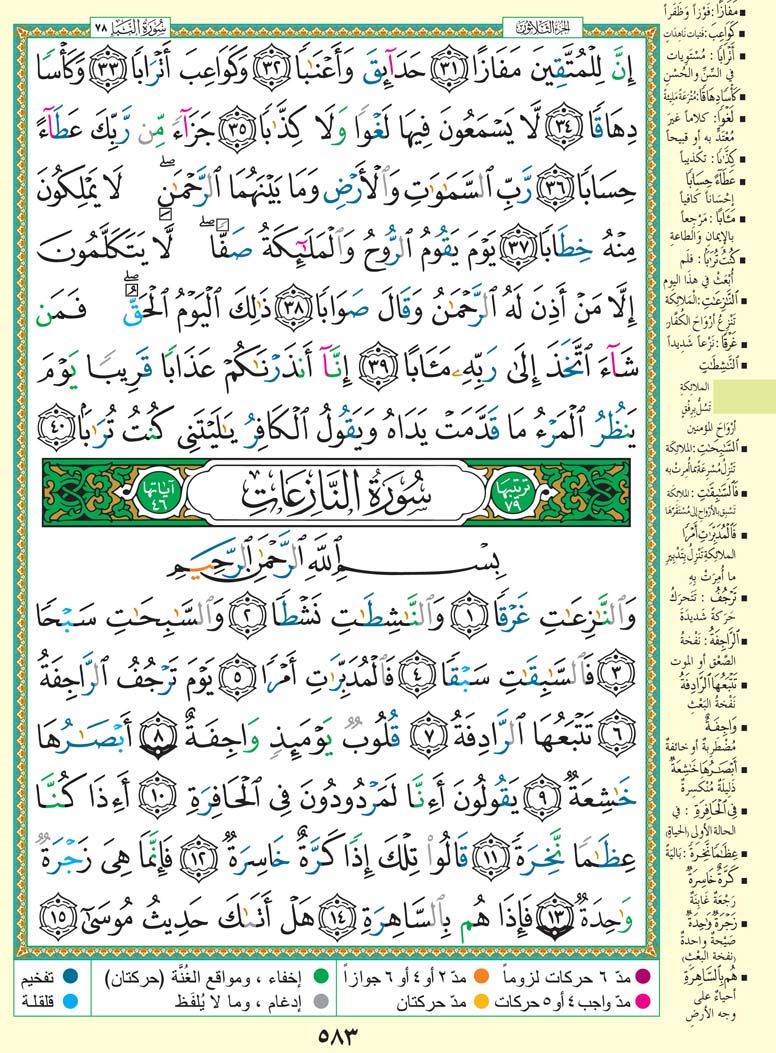 سُورَةُ النَّبَإِ ٧٨
الجُزءُ الثَّلَاثُونَ
إِنَّ لِلْمُتَّقِينَ مَفَازًا ٣١ حَدَآئِقَ وَأَعْنَٰبًا ٣٢ وَكَوَاعِبَ أَتْرَابًا ٣٣ وَكَأْسًا
دِهَاقًا ٣٤ لَّا يَسْمَعُونَ فِيهَا لَغْوًا وَلَا كِذَّٰبًا ٣٥ جَزَآءً مِّن رَّبِّكَ عَطَآءً
حِسَابًا ٣٦ رَّبِّ السَّمَٰوَٰتِ وَالْأَرْضِ وَمَا بَيْنَهُمَا الرَّحْمَٰنِ ۖ لَا يَمْلِكُونَ
مِنْهُ خِطَابًا ٣٧ يَوْمَ يَقُومُ الرُّوحُ وَالْمَلَٰٓئِكَةُ صَفًّا ۖ لَّا يَتَكَلَّمُونَ
إِلَّا مَنْ أَذِنَ لَهُ الرَّحْمَٰنُ وَقَالَ صَوَابًا ٣٨ ذَٰلِكَ الْيَوْمُ الْحَقُّ ۖ فَمَن
شَآءَ اتَّخَذَ إِلَىٰ رَبِّهِۦ مَـَٔابًا ٣٩ إِنَّآ أَنذَرْنَٰكُمْ عَذَابًا قَرِيبًا يَوْمَ
يَنظُرُ الْمَرْءُ مَا قَدَّمَتْ يَدَاهُ وَيَقُولُ الْكَافِرُ يَٰلَيْتَنِي كُنتُ تُرَٰبًۢا ٤٠
ترتيبها ٧٩ سُورَةُ النَّازِعَاتِ آياتها ٤٦
بِسْمِ اللَّهِ الرَّحْمَٰنِ الرَّحِيمِ
وَالنَّٰزِعَٰتِ غَرْقًا ١ وَالنَّٰشِطَٰتِ نَشْطًا ٢ وَالسَّٰبِحَٰتِ سَبْحًا
٣ فَالسَّٰبِقَٰتِ سَبْقًا ٤ فَالْمُدَبِّرَٰتِ أَمْرًا ٥ يَوْمَ تَرْجُفُ الرَّاجِفَةُ
٦ تَتْبَعُهَا الرَّادِفَةُ ٧ قُلُوبٌ يَوْمَئِذٍ وَاجِفَةٌ ٨ أَبْصَٰرُهَا
خَٰشِعَةٌ ٩ يَقُولُونَ أَءِنَّا لَمَرْدُودُونَ فِي الْحَافِرَةِ ١٠ أَءِذَا كُنَّا
عِظَٰمًا نَّخِرَةً ١١ قَالُوا تِلْكَ إِذًا كَرَّةٌ خَاسِرَةٌ ١٢ فَإِنَّمَا هِيَ زَجْرَةٌ
وَٰحِدَةٌ ١٣ فَإِذَا هُم بِالسَّاهِرَةِ ١٤ هَلْ أَتَىٰكَ حَدِيثُ مُوسَىٰٓ ١٥
مَفَازًا: فَوْزًا وَظَفَرًا
كَوَاعِبَ: فتيات ناهدات
أَتْرَابًا: مُسْتَوِيَات
في السِّنِّ والحُسْن
كَأْسًا دِهَاقًا: مُتْرَعَةً مَلِيئة
لَغْوًا: كلاماً غيرَ
مُعْتَدٍّ به أو قبيحاً
كِذَّٰبًا: تكذيباً
عَطَآءً حِسَابًا
إحْسَاناً كافياً
مَـَٔابًا: مَرْجِعاً
بالإيمان والطاعة
كُنتُ تُرَٰبًا: فلم
أُبْعَثْ في هذا اليوم
النَّٰزِعَٰتِ: الملائكة
تَنْزِعُ أَرْوَاحَ الكُفَّار
غَرْقًا: نَزْعاً شديداً
النَّٰشِطَٰتِ
الملائكةِ
تَسُلُّ بِرِفْقٍ
أَرْوَاحَ المؤمنين
السَّٰبِحَٰتِ: الملائكة
تَنْزِلُ مُسْرِعَةً بما أُمِرَتْ به
فَالسَّٰبِقَٰتِ: الملائكة
تَسْبِقُ بالأرواح إلى مُسْتَقَرِّهَا
فَالْمُدَبِّرَٰتِ أَمْرًا
الملائكةِ تَنْزِلُ بِتَدْبِيرِ
ما أُمِرَتْ به
تَرْجُفُ: تَتَحَركُ
حَرَكَةً شديدَةً
الرَّاجِفَةُ: نَفْخَةُ
الصَّعْقِ أو الموت
تَتْبَعُهَا الرَّادِفَةُ
نَفْخَةُ البَعْثِ
وَاجِفَةٌ
مُضْطَرِبةٌ أو خائفةٌ
أَبْصَٰرُهَا خَٰشِعَةٌ
ذَلِيلةٌ مُنْكَسِرةٌ
فِي الْحَافِرَةِ: في
الحالة الأولى (الحياة)
عِظَٰمًا نَّخِرَةً: بَالِيَةً
كَرَّةٌ خَاسِرَةٌ
رَجْعَةٌ غَابِنَةٌ
زَجْرَةٌ وَٰحِدَةٌ
صَيْحَةٌ واحدةٌ
(نفخة البعث)
هُم بِالسَّاهِرَةِ
أحياءٌ على
وجه الأرضِ
مدّ ٦ حركات لزوماً مدّ ٢ أو ٤ أو ٦ جوازاً إخفاء ، ومواقع الغُنَّة (حركتان) تفخيم
مدّ واجب ٤ أو ٥ حركات مدّ حركتان إدغام ، وما لا يُلفَظ قلقلة
٥٨٣